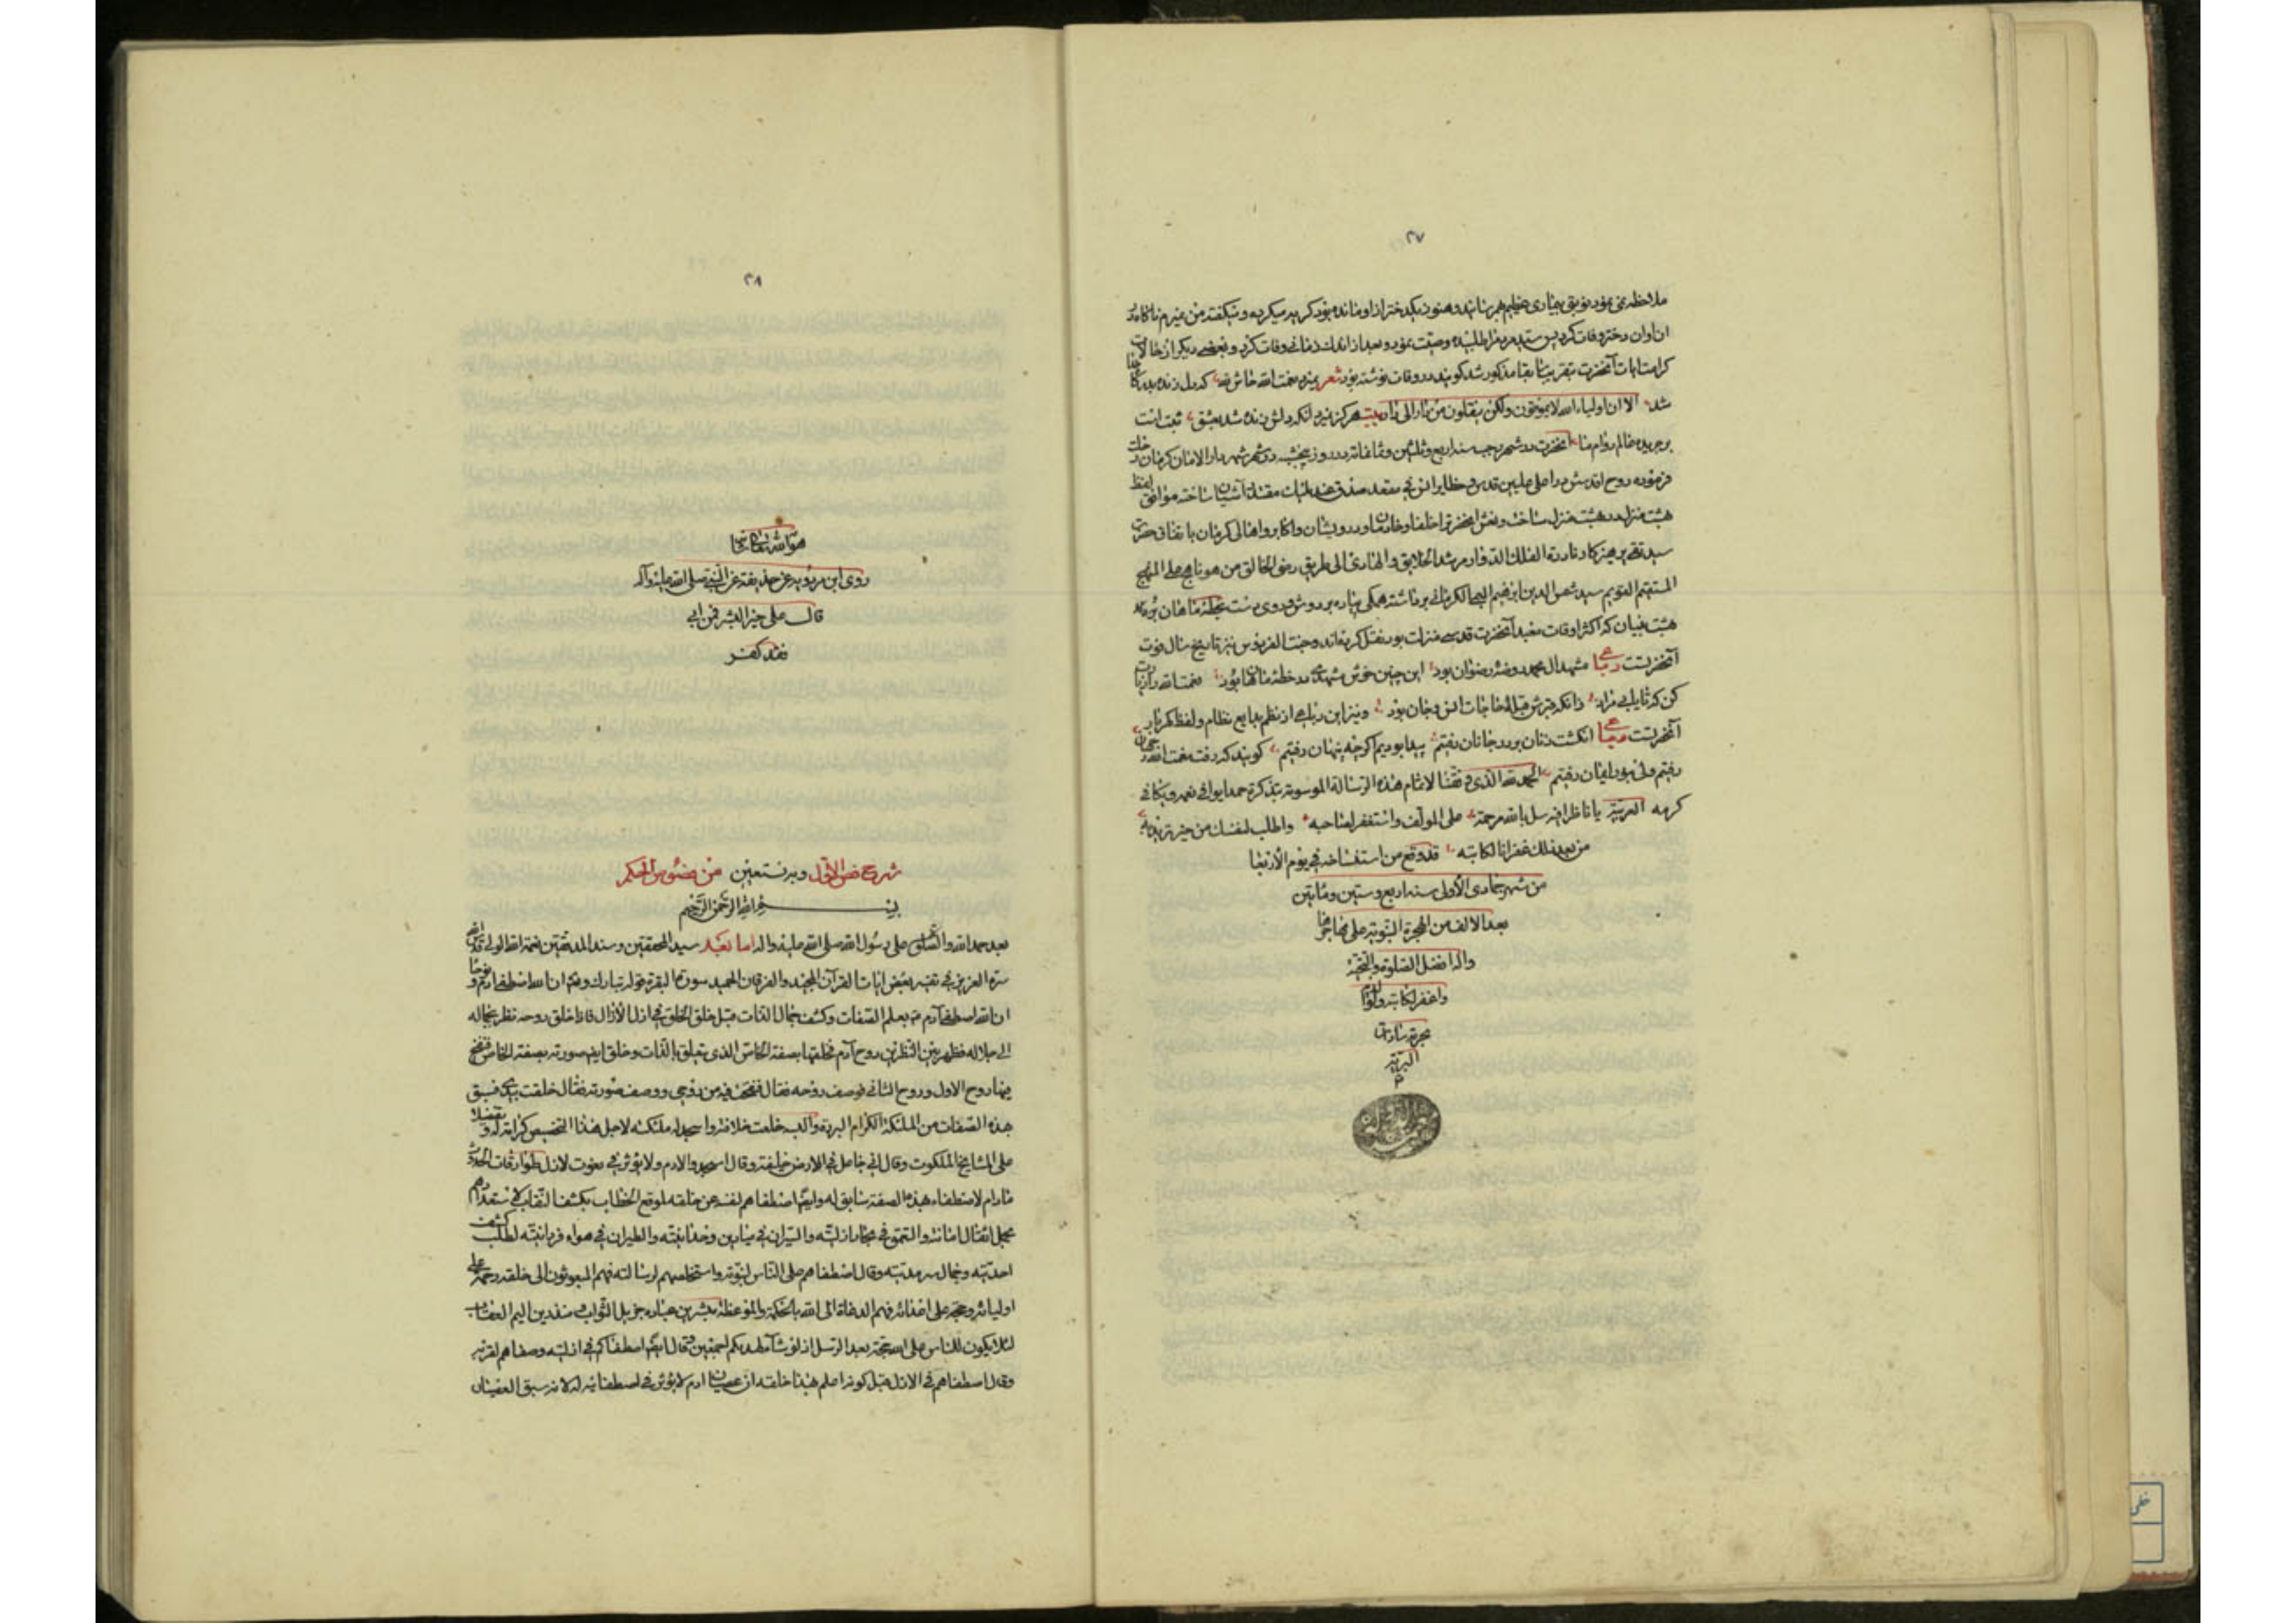 ۲۷
ملاحظه می نمود بیماری عظیم هم رسانید و هنوز یکدختر از او مانده بود گریه میکرد و میگفت من میرم ناگاه در
ان اوان دختر وفات کرد پس سید مرا طلبیده وصیت نمود و بعد از اندک زمانی وفات کرد و بعضی دیگر از حالات
کرامات آنحضرت مذکور شد گویند در وقت وفات نوشته بود شعر نعمت الله که دل زنده
شد الا ان اولیاء الله لا یموتون ولکن ینقلون من دار الی دار بیت هرگز نمیرد آنکه دلش زنده شد بعشق ثبت است
بر جریده عالم دوام ما آنحضرت در شهر رجب سنه اربع و ثلثین و ثمانمائه در روز پنجشنبه در شهر دار الامان کرمان رحلت
فرموده روح اقدسش در اعلی علیین قدس و حظایر انس فی مقعد صدق عند ملیک مقتدر آشیان ساخته موافق لفظ
بهشت منزل در بهشت منزل ساخت و نعش آنحضرت را خلفا و خادمان و درویشان و اکابر و اهالی کرمان باتفاق حضرت
سید نقی پرهیزکار الفلک الدوار مرشد الخلایق و الهادی الی طریق الخالق من هو ناهج علی المنهج
المستقیم القویم سید شمس الدین ابراهیم البمی الکرمانی برداشته همگی پیاده بر دوش بخطه ماهان برده
بهشت بنیان که اکثر اوقات معبد آنحضرت قدسی منزلت بود نقل کرده اند و جنت الفردوس نیز تاریخ سال فوت
آنحضرتست رباعی مشهد آل محمد روضه رضوان بود این چنین خوش مشهدی در خطه ماهان بود نعمت الله را زیارت
کن که تا یابی مراد زانکه قبرش قبله حاجات انس و جان بود و نیز این رباعی از نظم بدایع نظام و لفظ گهربار
آنحضرتست رباعی انگشت زنان بر در جانان رفتم پیدا بودیم اگرچه پنهان رفتم گویند که رفت نعمت الله ز جهان
رفتم ولی بنور ایمان رفتم الحمد لله الذی وفقنا لاتمام هذه الرسالة الموسومة بتذکرة حمدا یوافی نعمه و یکافی
کرمه العربیة یا ناظرا فیه سل بالله مرحمة علی المؤلف و استغفر لصاحبه و اطلب لنفسک من خیر ترید به
من بعد ذلک غفرانا لکاتبه قد وقع من استنساخه فی یوم الاربعا
من شهر جمادی الاولی سنه اربع و ستین و مائتین
بعد الالف من الهجرة النبویة علی مهاجرها
واله افضل الصلوة و التحیة
و اغفر لکاتبه و لوالدیه
بحرمة سادات
البریة
م
۲۸
هو الله تعالی
روی ابن مردویه عن حذیفة عن النبی صلی الله علیه و آله
قال علی خیر البشر فمن ابی
فقد کفر
شرح فص الاول و به نستعین من فصوص الحکم
بسم الله الرحمن الرحیم
بعد حمد الله و الصلوة علی رسول الله صلی الله علیه و اله اما بعد سید المحققین و سند المدققین نعمة الله الولی قدس الله
سره العزیز فی تفسیر بعض ایات القرآن المجید و الفرقان الحمید سورة البقرة قوله تبارک و تعالی ان الله اصطفی ادم و نوحا
ان الله اصطفی آدم بعلم الصفات و کشف جمال الذات قبل خلق الخلق فی ازل الآزال فاذا خلق روحه نظر بجماله
الی جلاله فظهر بین النظرین روح آدم فخلقها بصفته الخاص الذی یتعلق بالذات و خلق ایضا صورته بصفته الخاص فنفخ
فیها روح الاول و روح الثانی فوصف روحه فقال فنفخت فیه من روحی و وصف صورته فقال خلقت بیدی فسبق
بهذه الصفات من الملئکة الکرام البررة و البسه خلعت خلافته و اسجد له ملئکته لاجل هذا التخصیص کرامة له و تفضیلا
علی المشایخ الملکوت و قال انی جاعل فی الارض خلیفة و قال اسجدوا لادم و لا یؤثر فی نعوت لازل طوارقات الحدوث
مادام لاصطفاء بهذه الصفة سابق له و ایضا اصطفاهم لنفسه عن خلقه لموقع الخطاب بکشف النقاب لاستعدادهم
بحمل اثقال امانته و التعمق فی بحار ازلیته و السیران فی میادین وحدانیته و الطیران فی هواء فردانیته لطلب کشف
احدیته و جمال سرمدیته و قال اصطفاهم علی الناس لنبوته و استخلصهم لرسالته فهم المبعوثون الی خلقه رحمة علی
اولیائه و حجة علی اعدائه فهم الدعاة الی الله بالحکمة و الموعظة مبشرین عباده جزیل الثواب و منذرین الیم العقاب
لئلا یکون للناس علی الله حجة بعد الرسل اذ لو شاء لهدیکم اجمعین و قال ایضا اصطفاکم فی ازلیته و صفاهم لقربه
و قال اصطفاهم فی الازل قبل کونه اعلم بهذا خلقه ان عصیان ادم لا یؤثر فی اصطفائیته له لانه سبق العصیان